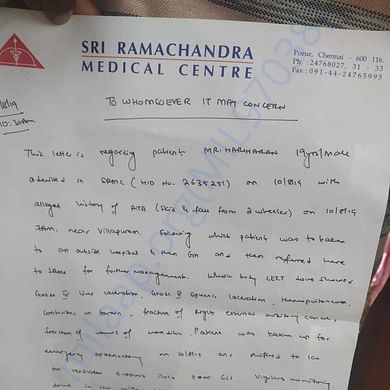 SRI RAMACHANDRA
MEDICAL CENTRE
Porur, Chennai - 600 116.
Ph. : 24768027, 31 - 33
Fax : 091-44-24765995
10:20am
TO WHOMSOEVER IT MAY CONCERN
This letter is regarding patient MR. HARIHARAN 19yrs/male
admitted in SRMC (HID No. 2635251) on 10/8/19 with
alleged history of RTA (skid & fall from 2 wheeler) on 10/8/19
7AM. near Villapuram. Following which patient was taken
to an outside hospital & then GH and then referred here
to SRMC for further management. Whole body CECT done showed
Grade IV liver laceration, Grade II splenic laceration, Hemoperitoneum,
Contusion in brain, fracture of Right external auditory canal,
fracture of ramus of mandible. Patient was taken up for
emergency on 10/8/19 and shifted to ICU
on ventilator support Vigilus monitoring
done in the